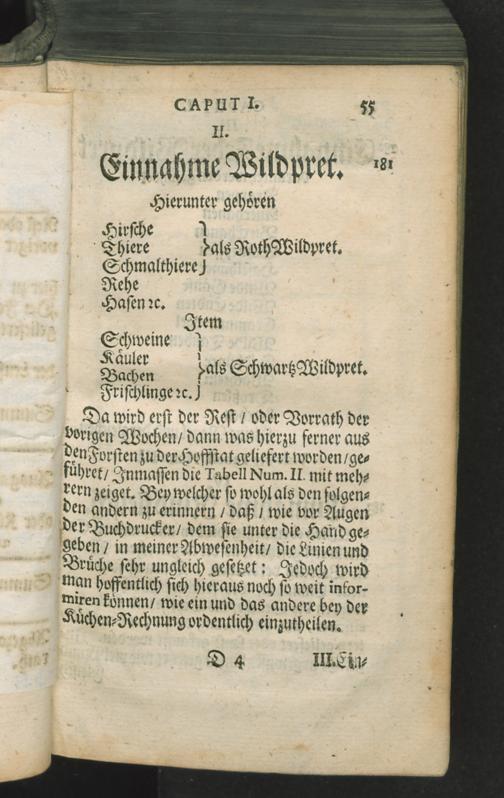 CAPUT I. 55
II.
Einnahme Wildpret. 181
Hierunter gehören
Hirsche
Thiere } als Roth Wildpret.
Schmalthiere
Rehe
Hasen ꝛc.
Item
Schweine
Käuler
Bachen } als Schwartz Wildpret.
Frischlinge ꝛc.
Da wird erst der Rest / oder Vorrath der
vorigen Wochen / dann was hierzu ferner aus
den Forsten zu der Hoffstat geliefert worden / ge⸗
führet / Inmassen die Tabell Num. II. mit meh⸗
rern zeiget. Bey welcher so wohl als den folgen⸗
den andern zu erinnern / daß / wie vor Augen
der Buchdrucker / dem sie unter die Hand ge⸗
geben / in meiner Abwesenheit / die Linien und
Brüche sehr ungleich gesetzet : Jedoch wird
man hoffentlich sich hieraus noch so weit infor-
miren können / wie ein und das andere bey der
Küchen⸗Rechnung ordentlich einzutheilen.
D 4 III. Ein⸗